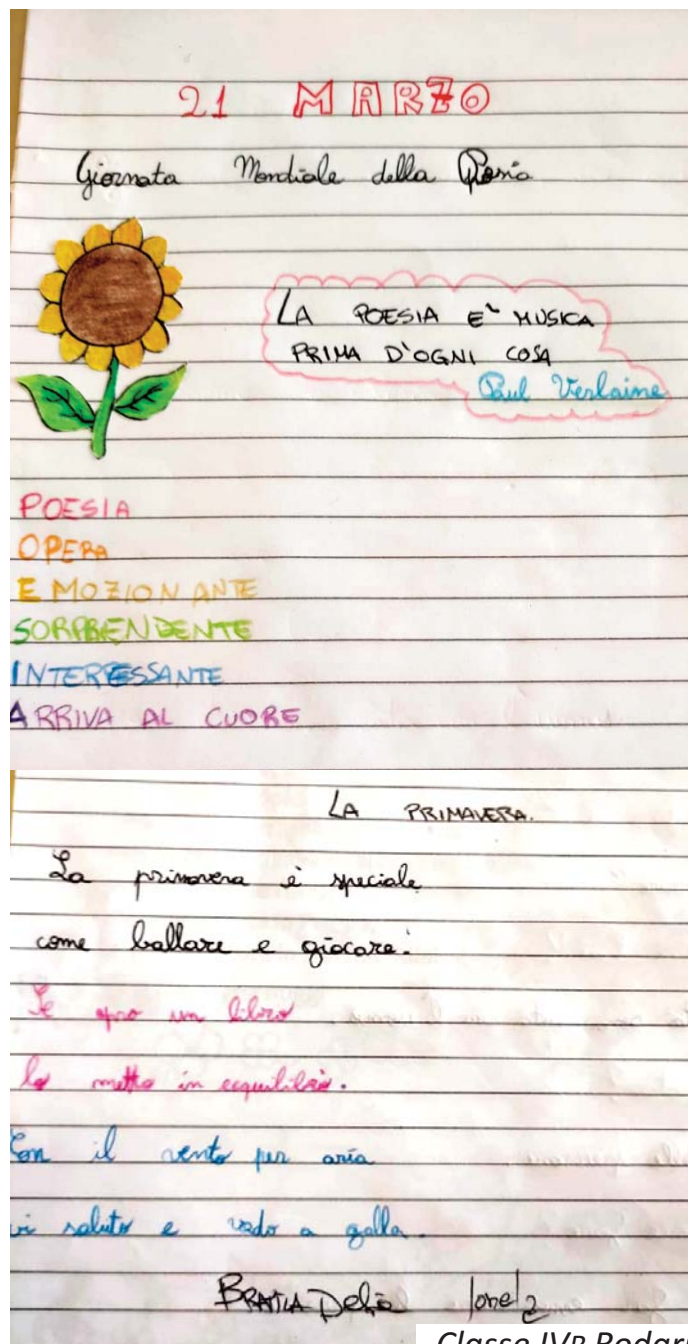 21 MARZO
Giornata Mondiale della Poesia
LA POESIA E' MUSICA
PRIMA D'OGNI COSA
Paul Verlaine
POESIA
OPERA
EMOZIONANTE
SORPRENDENTE
INTERESSANTE
ARRIVA AL CUORE
LA PRIMAVERA.
La primavera è speciale
come ballare e giocare.
Se apro un libro
lo metto in eequilibrio.
Con il vento per aria
vi saluto e vado a galla.
Delia
Classe IVB Rodari